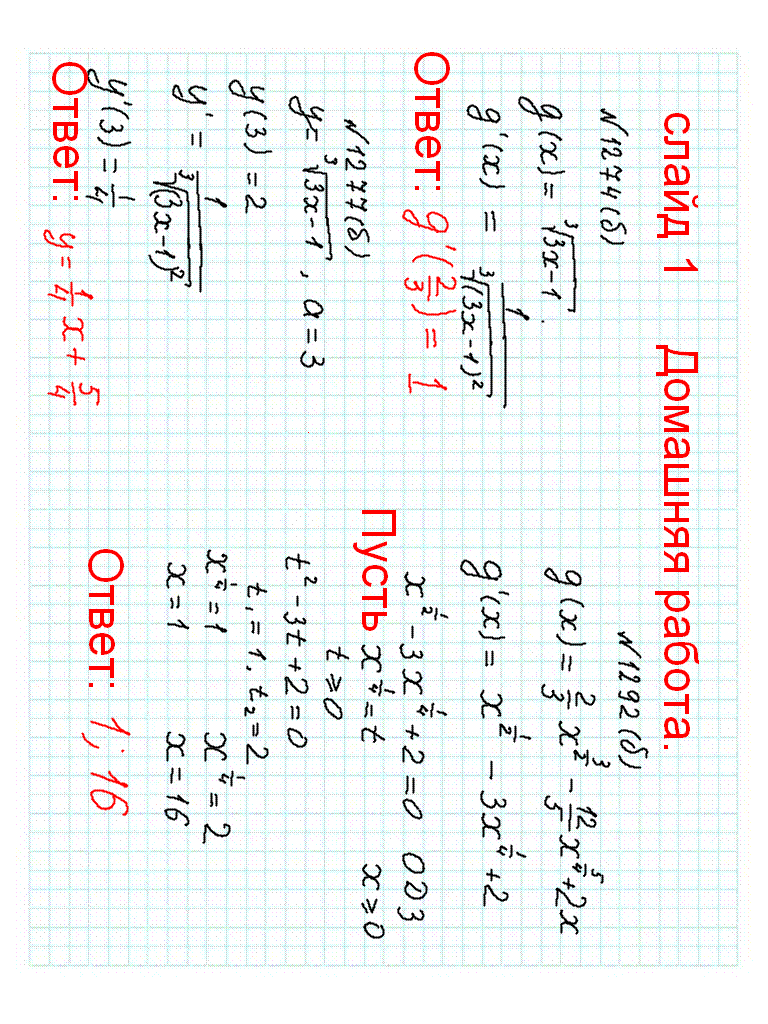 слайд 1 Домашняя работа.
№1274(б)
g(x) = ∛(3x-1).
g'(x) = 1/∛((3x-1)²)
Ответ: g'(2/3) = 1
№1277(б)
y = ∛(3x-1), a = 3
y(3) = 2
y' = 1/∛((3x-1)²)
y'(3) = 1/4
Ответ: y = 1/4 x + 5/4
№1292(б)
g(x) = 2/3 x^(3/2) - 12/5 x^(5/4) + 2x
g'(x) = x^(1/2) - 3x^(1/4) + 2
x^(1/2) - 3x^(1/4) + 2 = 0 ОДЗ
Пусть x^(1/4) = t x ⩾ 0
t ⩾ 0
t² - 3t + 2 = 0
t₁ = 1, t₂ = 2
x^(1/4) = 1 x^(1/4) = 2
x = 1 x = 16
Ответ: 1; 16